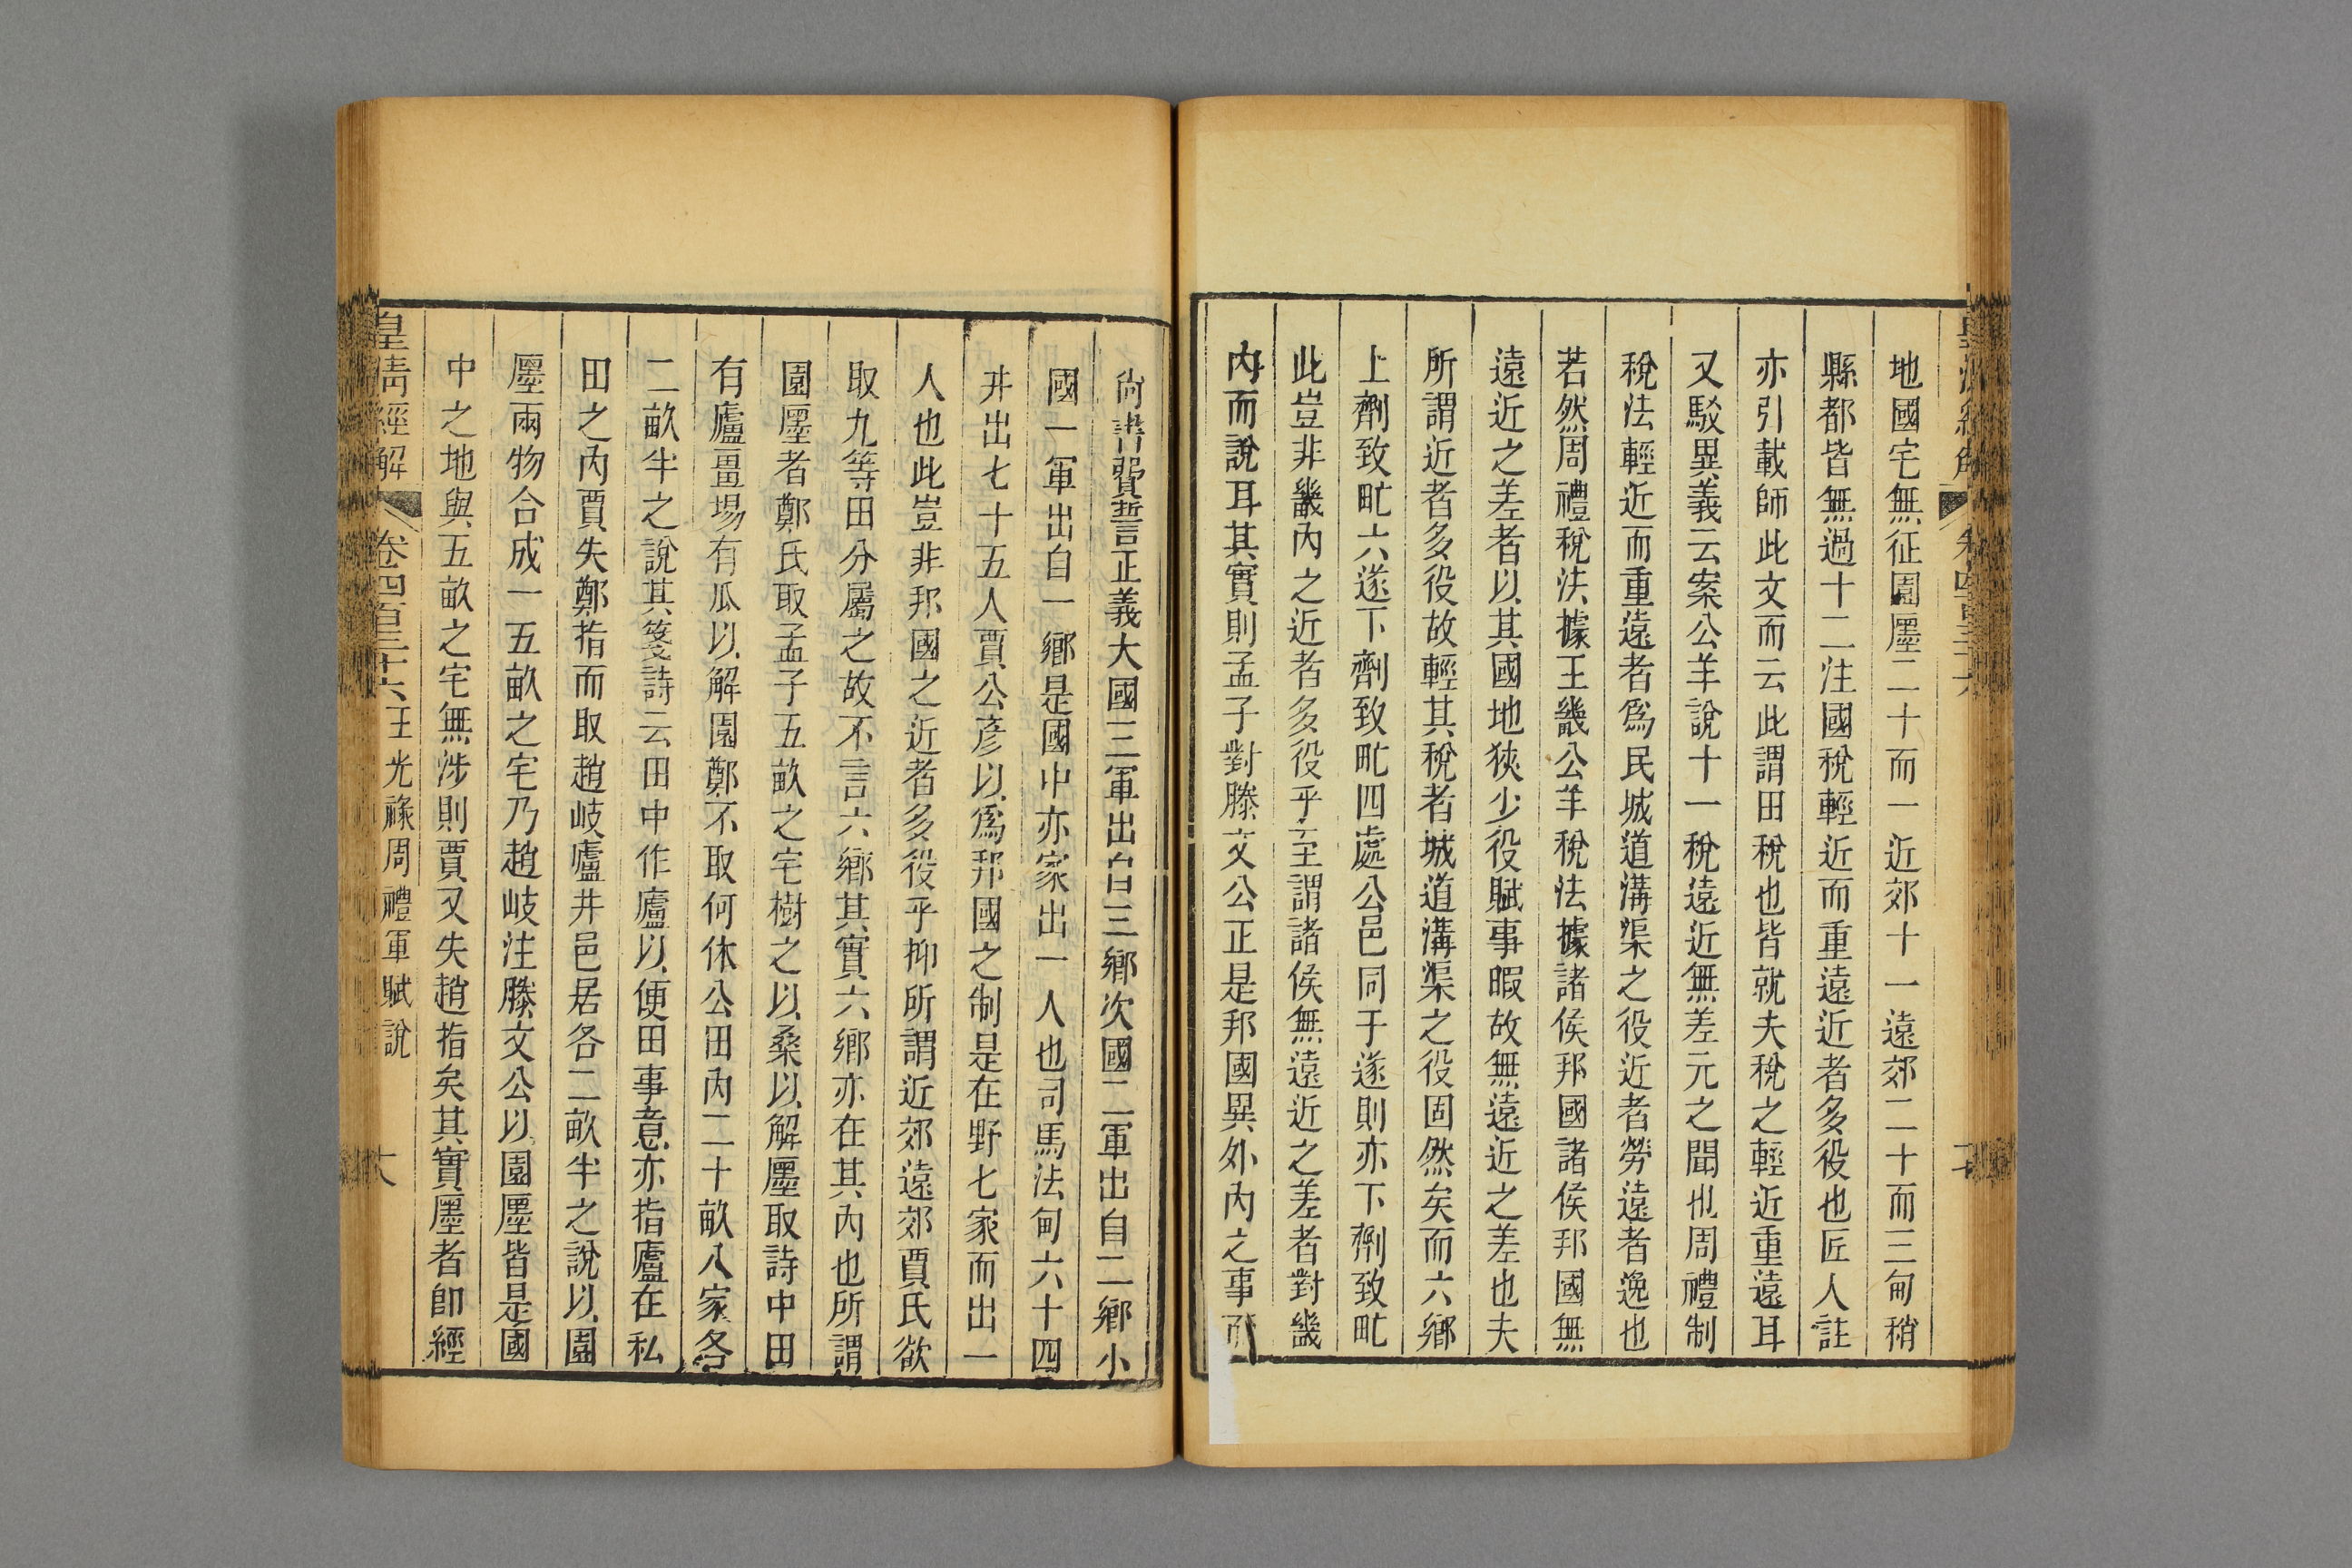 地國宅無征園廛二十而一近郊十一遠郊二十而三甸稍
縣都皆無過十二注國稅輕近而重遠近者多役也匠人註
亦引載師此文而云此謂田稅也皆就夫稅之輕近重遠耳
又駁異義云案公羊說十一稅遠近無差元之聞也周禮制
稅法輕近而重遠者爲民城道溝渠之役近者勞遠者逸也
若然周禮稅法據王畿公羊稅法據諸侯邦國諸侯邦國無
遠近之差者以其國地狹少役賦事暇故無遠近之差也夫
所謂近者多役故輕其稅者城道溝渠之役固然矣而六鄉
上劑致甿六遂下劑致甿四處公邑同于遂則亦下劑致甿
此豈非畿內之近者多役乎至謂諸侯無遠近之差者對畿
內而說耳其實則孟子對滕文公正是邦國異外內之事而
尙書費誓正義大國三軍出自三鄉次國二軍出自二鄉小
國一軍出自一鄉是國中亦家出一人也司馬法甸六十四
井出七十五人賈公彥以爲邦國之制是在野七家而出一
人也此豈非邦國之近者多役乎抑所謂近郊遠郊賈氏欲
取九等田分屬之故不言六鄉其實六鄉亦在其內也所謂
園廛者鄭氏取孟子五畝之宅樹之以桑以解廛取詩中田
有廬畺場有瓜以解園鄭不取何休公田內二十畝八家各
二畝半之說其箋詩云田中作廬以便田事意亦指廬在私
田之內賈失鄭指而取趙岐廬井邑居各二畝半之說以園
廛兩物合成一五畝之宅乃趙岐注滕文公以園廛皆是國
中之地與五畝之宅無涉則賈又失趙指矣其實廛者卽經
皇清經解 卷四百三十六 王光祿周禮軍賦說 大